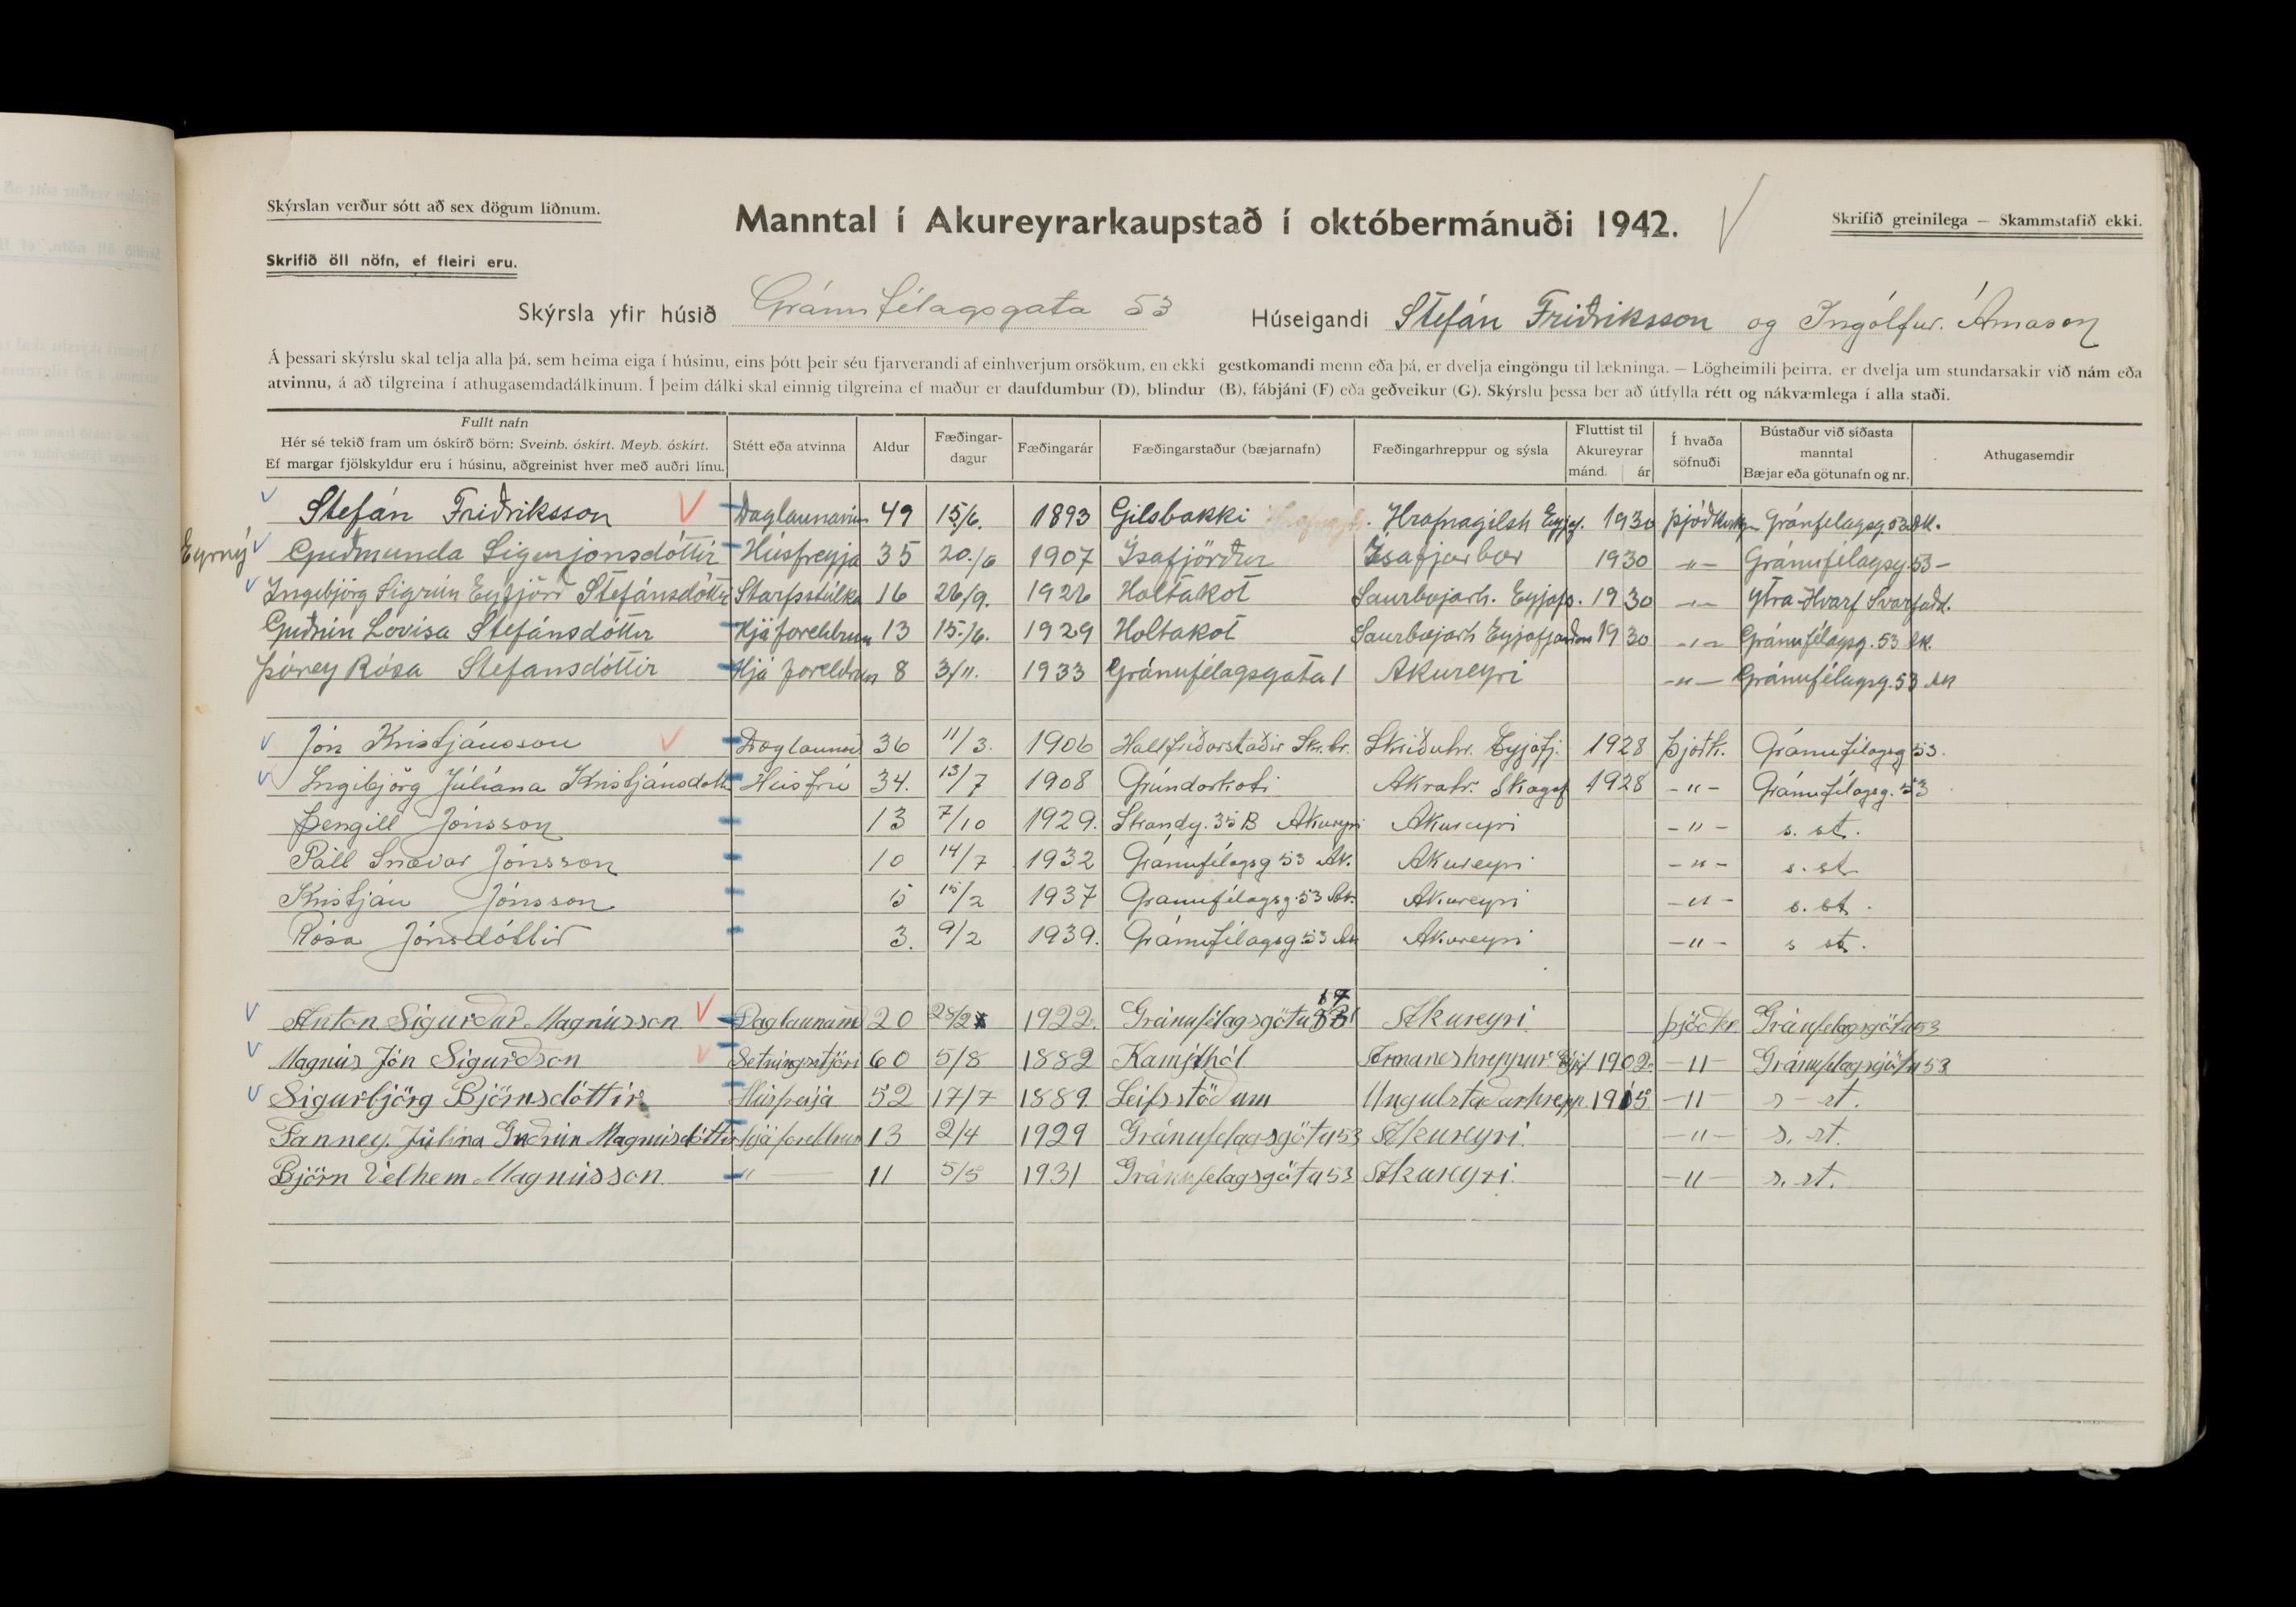 Skýrslan verður sótt að sex dögum liðnum.
Manntal í Akureyrarkaupstað í októbermánuði 1942.
Skrifið greinilega — Skammstafið ekki.
Skrifið öll nöfn, ef fleiri eru.
Skýrsla yfir húsið Gránufélagsgata 53 Húseigandi Stefán Friðriksson og Ingólfur Árnason
Á þessari skýrslu skal telja alla þá, sem heima eiga í húsinu, eins þótt þeir séu fjarverandi af einhverjum orsökum, en ekki gestkomandi menn eða þá, er dvelja eingöngu til lækninga. — Lögheimili þeirra, er dvelja um stundarsakir við nám eða
atvinnu, á að tilgreina í athugasemdadálkinum. Í þeim dálki skal einnig tilgreina ef maður er daufdumbur (D), blindur (B), fábjáni (F) eða geðveikur (G). Skýrslu þessa ber að útfylla rétt og nákvæmlega í alla staði.
Fullt nafn
Hér sé tekið fram um óskírð börn: Sveinb. óskírt. Meyb. óskírt.
Ef margar fjölskyldur eru í húsinu, aðgreinist hver með auðri línu.
Stétt eða atvinna
Aldur
Fæðingar-
dagur
Fæðingarár
Fæðingarstaður (bæjarnafn)
Fæðingarhreppur og sýsla
Fluttist til
Akureyrar
mánd. ár
Í hvaða
söfnuði
Bústaður við síðasta
manntal
Bæjar eða götunafn og nr.
Athugasemdir
Stefán Friðriksson Daglaunavin 49 15/6. 1893 Gilsbakki Hrafnagilsh Eyjaf. 1930 Þjóðkirkju Gránfélagsg. 53 Ak.
Eyrný Guðmunda Sigurjónsdóttir Húsfreyja 35 20./6 1907 Ísafjörður Ísafjarbær 1930 -"- Gránufélagsg. 53 -
Ingibjörg Sigrún Eyfjörð Stefánsdóttir Starfsstúlka 16 26/9. 1926 Holtakot Saurbæjarh. Eyjafj. 1930 -"- Ytra-Hvarf Svarfaðd.
Guðrún Lovísa Stefánsdóttir Hjá foreldrum 13 15./6. 1929 Holtakot Saurbæjarh Eyjafjarðar 1930 -"- Gránufélagsg. 53 Ak.
Þórey Rósa Stefansdóttir Hjá foreldrum 8 3/11. 1933 Gránufélagsgata 1 Akureyri -"- Gránufélagsg. 53 Ak
Jón Kristjánsson Daglaunam 36 11/3. 1906 Hallfríðarstaðir Sk.hr. Skriðuhr. Eyjafj. 1928 Þjóðk. Gránufélagsg 53.
Ingibjörg Júlíana Kristjánsdóttir Húsfrú 34. 13/7 1908 Grundarkoti Akrahr. Skagaf 1928 -"- Gránufélagsg. 53
Þengill Jónsson 13 7/10 1929. Strandg. 35 B Akureyri Akureyri -"- s. st.
Páll Snævar Jónsson 10 14/7 1932 Gránufélagsg 53 Ak. Akureyri -"- s. st
Kristján Jónsson 5 15/2 1937 Gránufélagsg. 53 Ak. Akureyri -"- s. st.
Rósa Jónsdóttir 3. 9/2 1939. Gránufélagsg 53 Ak Akureyri -"- s st.
Anton Sigurður Magnússon Daglaunam 20 25/2 1922. Gránufélagsgötu Akureyri Þjóðk Gránfelagsgötu 53
Magnús Jón Sigurðson Setningstjóri 60 5/8 1882 Kamphól Arnaneshreppur Eyjf 1902. -"- Gránufelagsgötu 53
Sigurbjörg Björnsdóttir Húsfreyja 52 17/7 1889. Leifsstöðum Ungulstaðarhrepp. 1915. -"- s - st.
Fanney. Júlina Guðrún Magnúsdóttir hjá foreldrum 13 2/4 1929 Gránufelagsgötu 53 Akureyri. -"- s. st.
Björn Vélhem Magnússon. " — 11 5/5 1931 Gránufelagsgötu 53 Akureyri. -"- s. st.